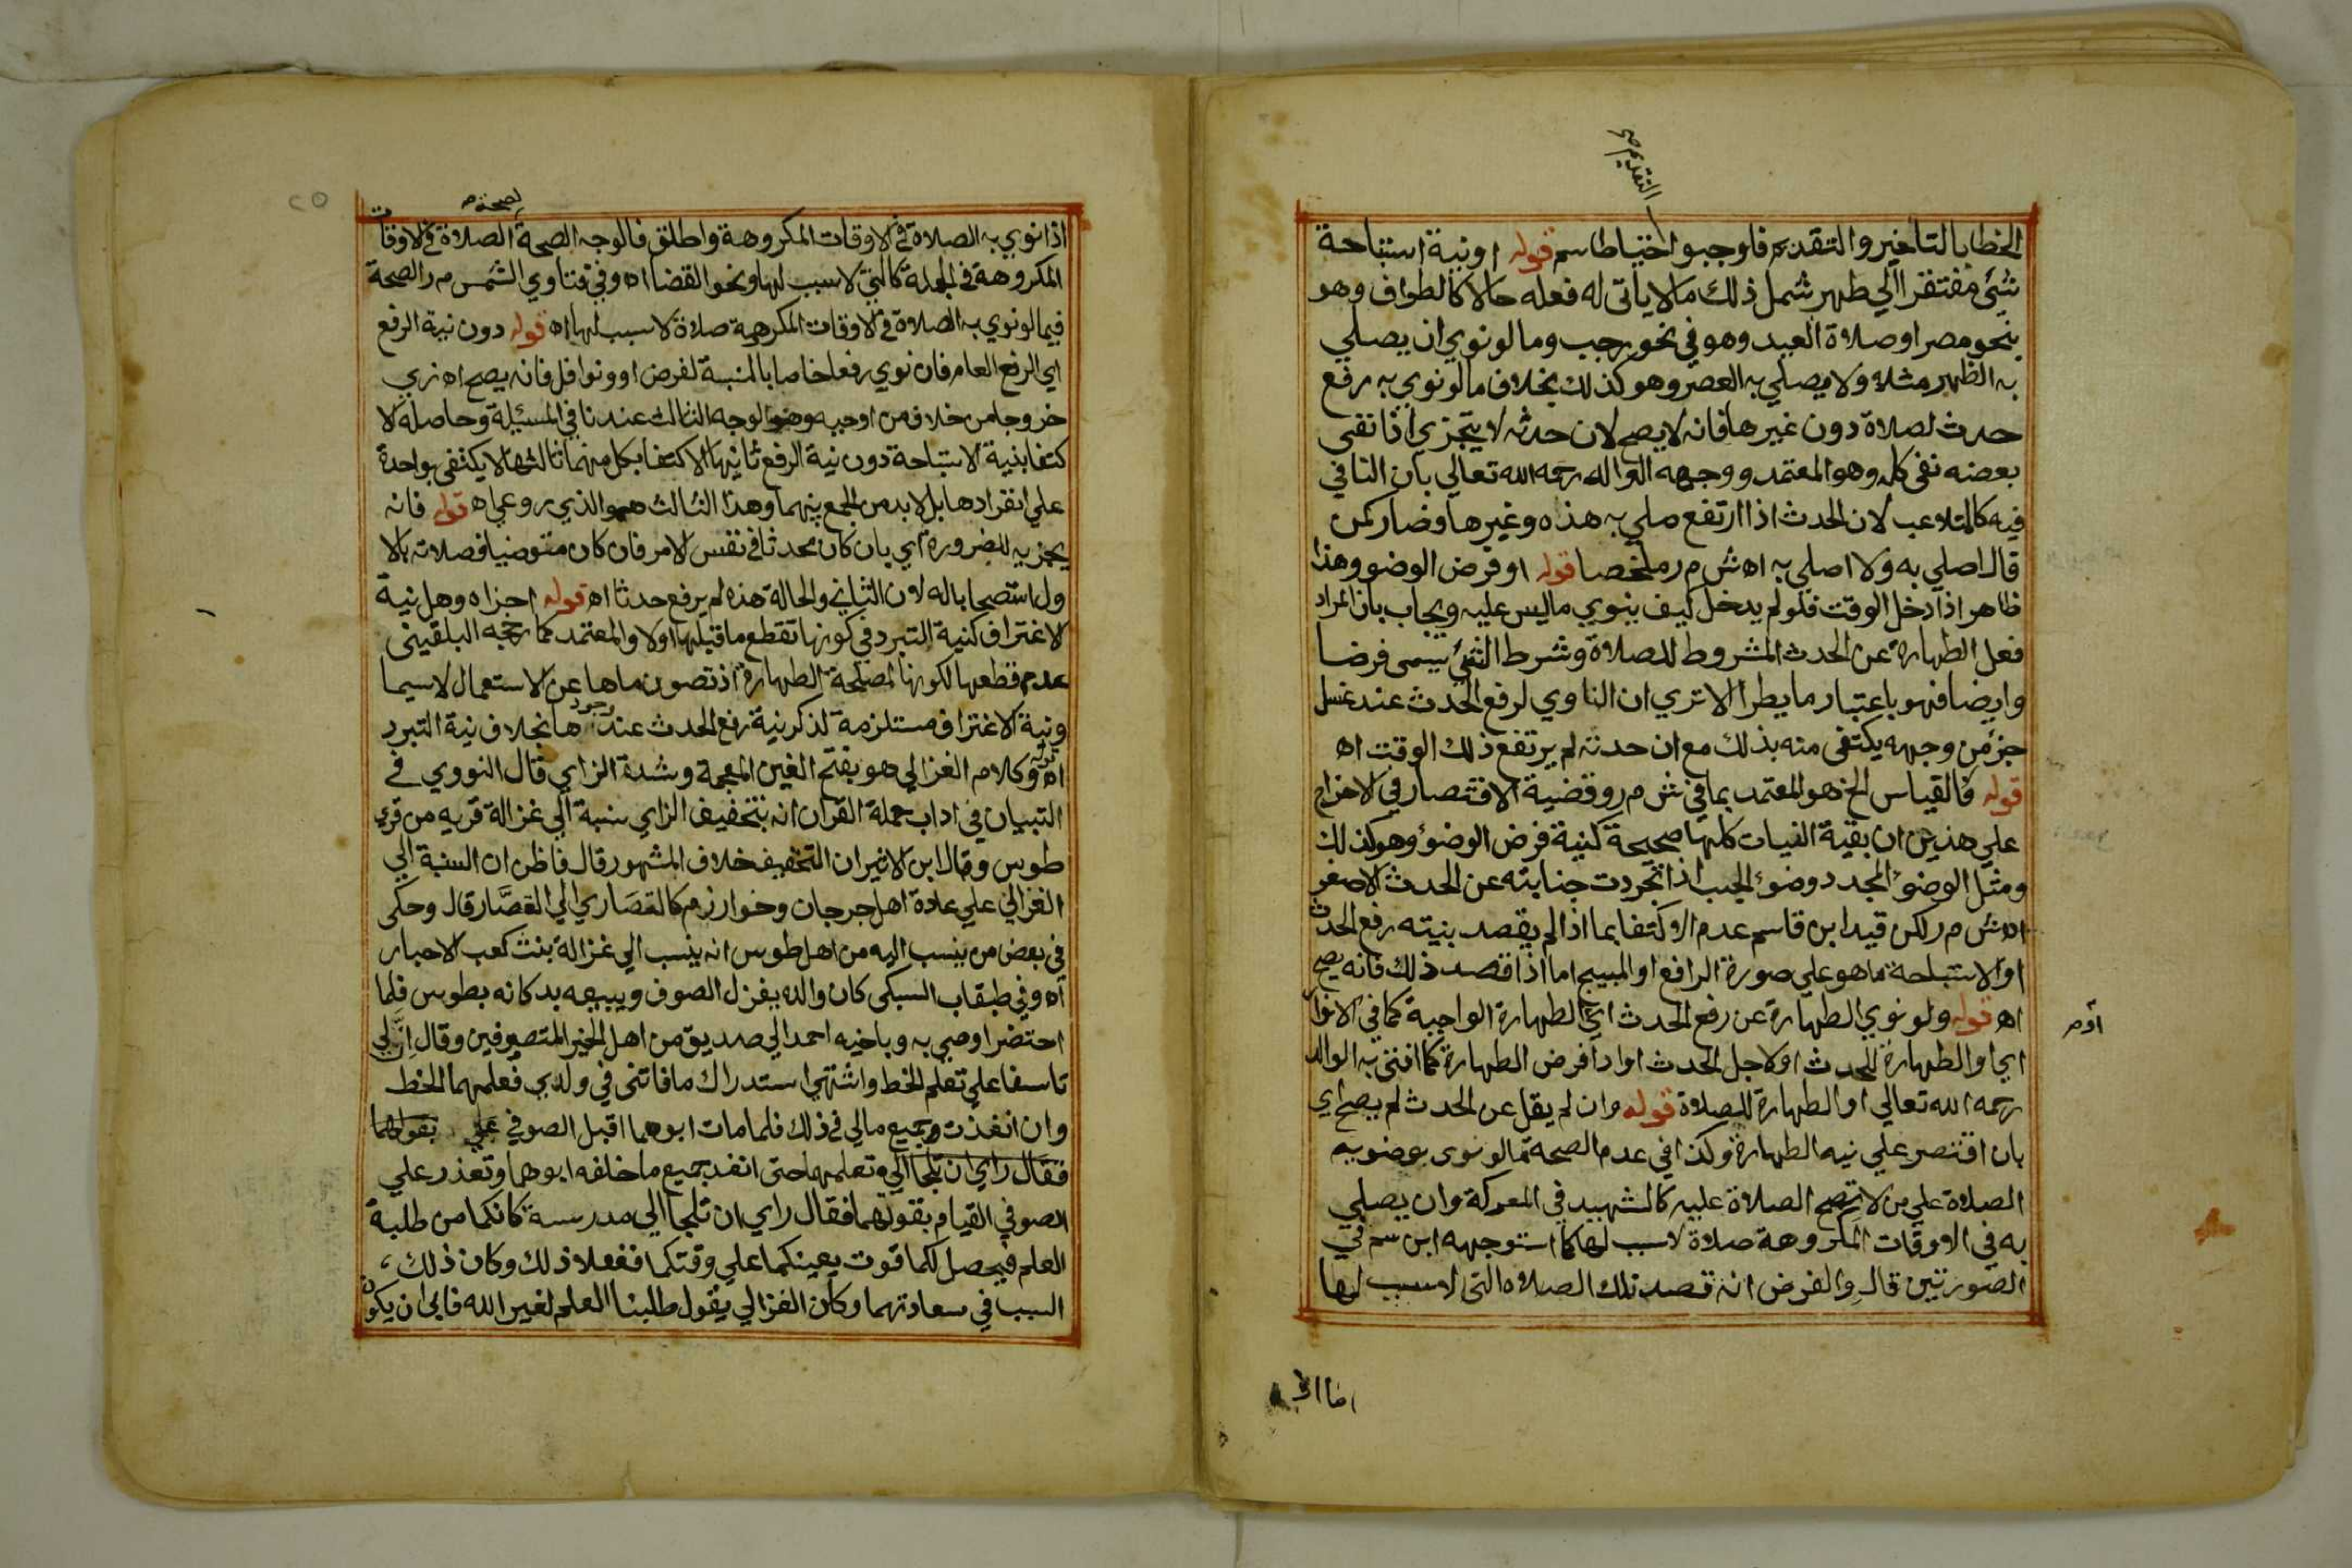 التقديم صح
الخطا بالتاخير والتقديم فاوجبوا احتياطا سم قوله او نية استباحة
شئ مفتقر الي طهر شمل ذلك ما لا ياتى له فعله حالا كالطواف وهو
بنحو مصر او صلاة العيد وهو في نحو رجب وما لو نوي ان يصلي
به الظهر مثلا ولا يصلي به العصر وهو كذلك بخلاف ما لو نوي به رفع
حدث لصلاة دون غيرها فانه لا يصح لان حدثه لا يتجزي اذا نفى
بعضه نفى كله وهو المعتمد ووجهه الوالد رحمه الله تعالي بان النافي
فيه كالمتلاعب لان الحدث اذا ارتفع صلي به هذه وغيرها وصار كمن
قال اصلي به ولا اصلي به اه ش م ر ملخصا قوله او فرض الوضو وهذا
ظاهر اذا دخل الوقت فلو لم يدخل كيف ينوي ما ليس عليه ويجاب بان المراد
فعل الطهارة عن الحدث المشروط للصلاة وشرط الشئ يسمى فرضا
وايضا فهو باعتبار ما يطرا الا تري ان الناوي لرفع الحدث عند غسل
جزء من وجهه يكتفى منه بذلك مع ان حدثه لم يرتفع ذلك الوقت اه
قوله فالقياس الخ هو المعتمد بما في ش م ر وقضية الاقتصار في الاخراج
علي هذين ان بقية النيات كلها صحيحة كنية فرض الوضوء وهو كذلك
ومثل الوضوء المجدد وضوء الجنب اذا تجردت جنابته عن الحدث الاصغر
اه ش م ر لكن قيد ابن قاسم عدم الاكتفا بما اذا لم يقصد بنيته رفع الحدث
او الاستباحة ما هو علي صورة الرافع او المبيح اما اذا قصد ذلك فانه يصح
اه قوله ولو نوي الطهارة عن رفع الحدث اي الطهارة الواجبة كما في الانوار
اي او الطهارة للحدث او لاجل الحدث او ادا فرض الطهارة كما افتى به الوالد
رحمه الله تعالي او الطهارة للصلاة قوله وان لم يقل عن الحدث لم يصح اي
بان اقتصر علي نيه الطهارة وكذا في عدم الصحة ما لو نوى بوضويه
الصلاة علي من لا تصح الصلاة عليه كالشهيد في المعركة وان يصلي
به في الاوقات المكروهة صلاة لا سبب لها كما استوجهه ابن سم في
الصورتين قال والفرض انه قصد تلك الصلاه التى لا سبب لها
اما اذا
لصحة
اذا نوي به الصلاة في الاوقات المكروهة واطلق فالوجه الصحة الصلاة في الاوقات
المكروهة في الجملة كالتي لا سبب لها ونحو القضا اه وفي فتاوي الشمس م ر الصحة
فيما لو نوي به الصلاة في الاوقات المكرهة صلاة لا سبب لها اه قوله دون نية الرفع
اي الرفع العام فان نوي رفعا خاصا بالنسبة لفرض او ونوافل فانه يصح اه زي
خروجا من خلاف من اوجبه وهو الوجه الثالث عندنا في المسئيلة وحاصله لا
كتفا بنية الاستباحة دون نية الرفع ثانيها الاكتفا بكل منهما ثالثها لا يكتفى بواحدة
علي انفرادها بل لا بد من الجمع بينهما وهذا الثالث هو الذي روعي اه قوله فانه
يجزيه للضرورة اي بان كان محدثا في نفس الامر فان كان متوضيا فصلاته بالا
ول استصحابا له لان الثاني والحالة هذه لم يرفع حدثا اه قوله اجزاه وهل نية
لاغتراف كنية التبرد في كونها تقطع ما قبلها اولا والمعتمد كما رجحه البلقيني
عدم قطعها لكونها لمصلحة الطهارة اذ تصون ماها عن الاستعمال لا سيما
ونية الاغتراف مستلزمة لذكر نية رفع الحدث عند وجودها بخلاف نية التبرد
اه وكلام الغزالي هو بفتح الغين المعجمة وشدة الزاي قال النووي في
التبيان في اداب حملة القران انه بتخفيف الزاي نسبة الي غزالة قريه من قري
طوس وقال ابن الاثير ان التخفيف خلاف المشهور قال فاظن ان النسبة الي
الغزالي علي عادة اهل جرجان وخوارزم كالقصاري الي القصار قال وحكى
في بعض من ينسب اليه من اهل طوس انه ينسب الي غزالة بنت كعب الاحبار
اه وفي طبقات السبكى كان والده يغزل الصوف ويبيعه بدكانه بطوس فلما
احتضر اوصي به وباخيه احمد الي صديق من اهل الخير المتصوفين وقال ان لي
تاسفا علي تعلم الخط واشتهي استدراك ما فاتني في ولدي فعلمهما الخط
وان انفذت جميع مالي في ذلك فلما مات ابوهما اقبل الصوفي علي بقولهما
فقال راي ان تلجا الي وتعلمهما حتى انفد جميع ما خلفه ابوهما وتعذر علي
الصوفي القيام بقوتهما فقال راي ان تلجا الي مدرسة كانكما من طلبة
العلم فيحصل لكما قوت يعينكما علي وقتكما ففعلا ذلك وكان ذلك
السبب في سعادتهما وكان الغزالي يقول طلبنا العلم لغير الله فابى ان يكون